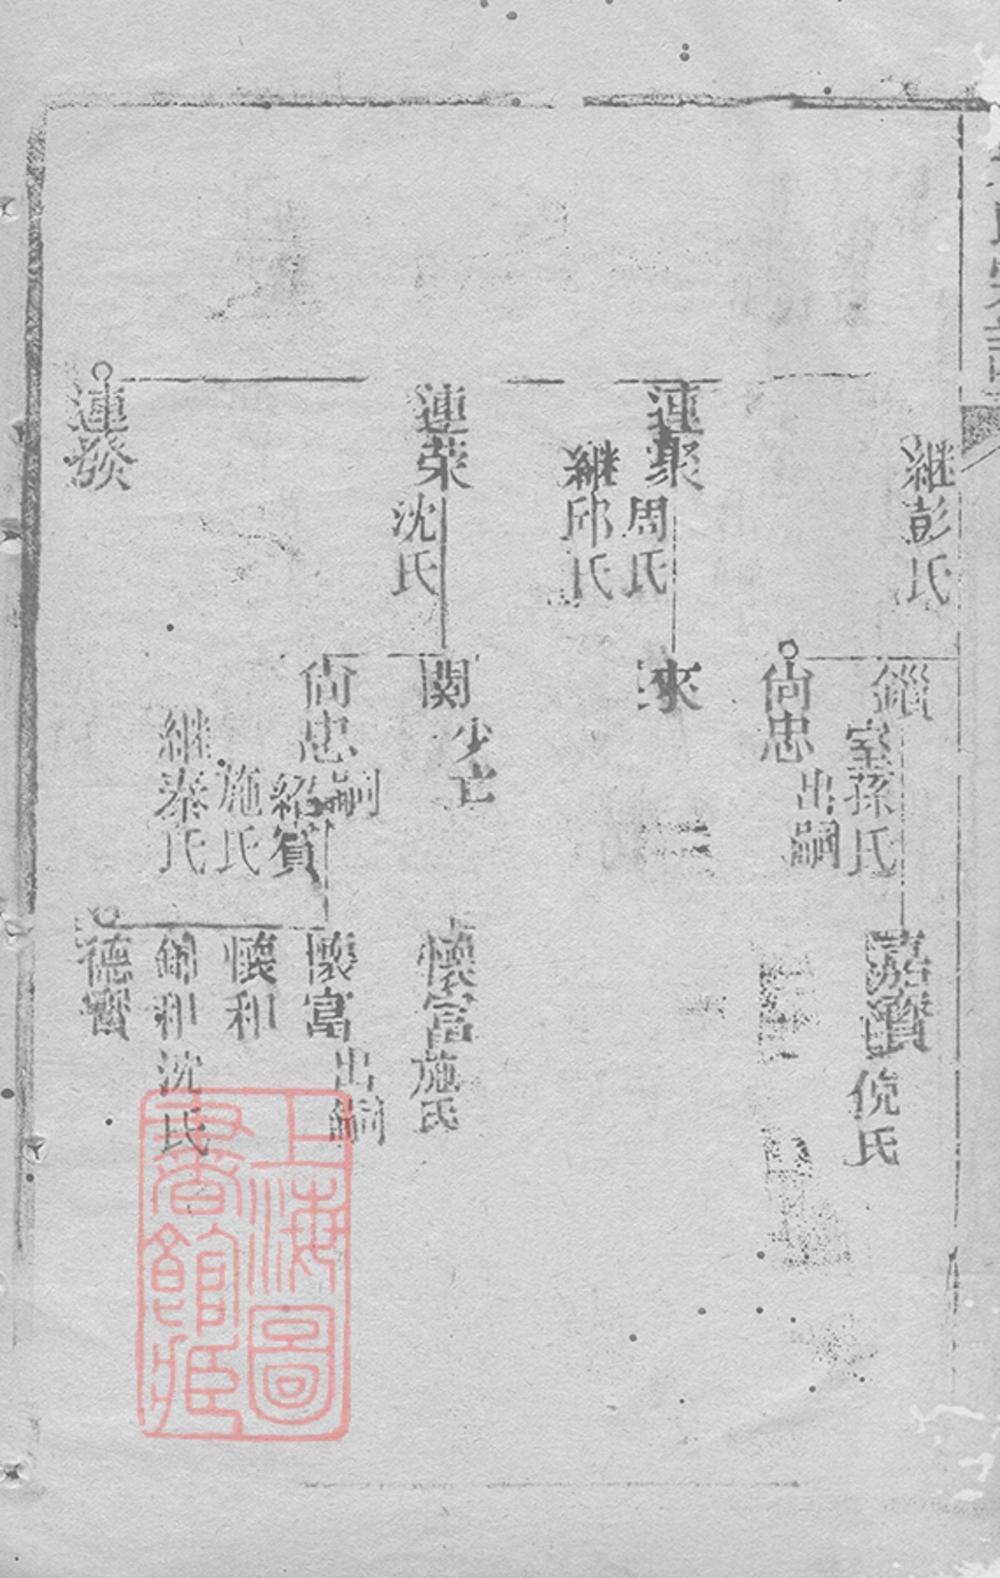 繼彭氏
連聚
周氏
繼邱氏
連荣
沈氏
連發
鎦
室孫氏
尙忠
出嗣
來
関
少亡
尙忠
嗣
紹賓
施氏
繼秦氏
嘉賓
倪氏
懷富
施氏
懷富
出嗣
懷和
錦和
沈氏
德寶
上海圖
書館藏